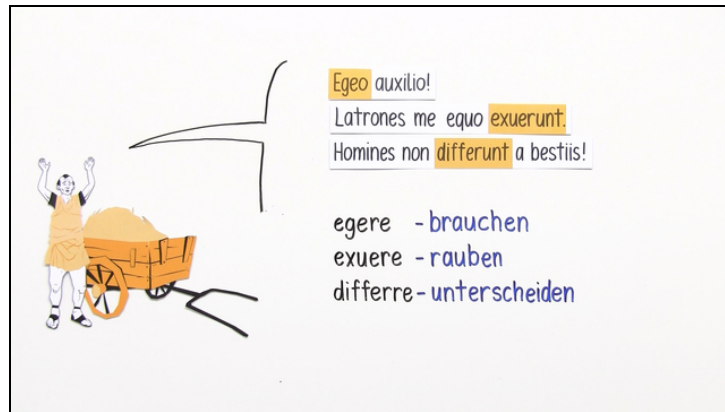 Egeo auxilio!
Latrones me equo exuerunt.
Homines non differunt a bestiis!
egere - brauchen
exuere - rauben
differre - unterscheiden